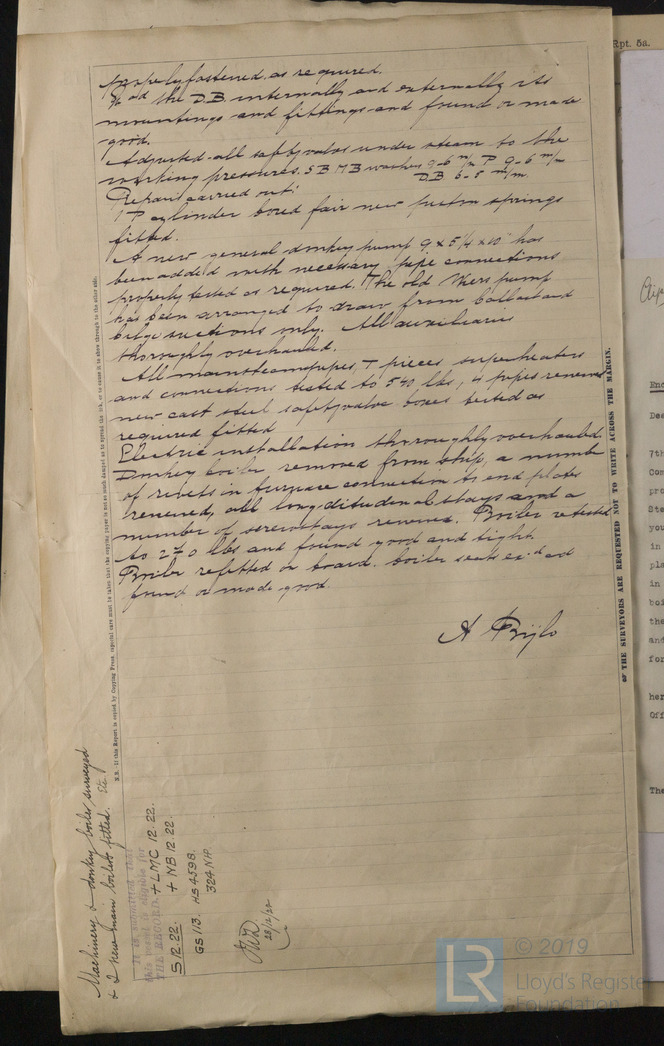 properly fastened as required.
Ex'd the D.B. internally and externally its
mountings and fittings and found or made
good.
Adjusted all safety valves under steam to the
working pressures. SB MB washers 9.6 m/m P 9.6 m/m
DB 6.8 m/m.
Repairs carried out:
1 P cylinder bored fair new piston springs
fitted.
A new general donkey pump 9 x 5 1/4 x 10" has
been added with necessary pipe connections
properly tested as required. The old pump
has been arranged to draw from ballast and
bilge suctions only. All auxiliaries
thoroughly overhauled.
All main steampipes, T pieces superheaters
and connections tested to 540 lbs, 4 pipes renewed
new cast steel safetyvalve boxes tested as
required fitted
Electric installation thoroughly overhauled.
Donkey boiler removed from ship, a number
of rivets in furnace connection to end plates
renewed, all longditudenal stays and a
number of screwstays renewed. Boiler retested
to 270 lbs and found good and tight.
Boiler refitted on board. boiler seats ex'd and
found or made good.
A
N.B.-If this Report is copied by Copying Press, especial care must be taken that the copying paper is not so much damped as to spread the ink, or to cause it to show through to the other side.
THE SURVEYORS ARE REQUESTED NOT TO WRITE ACROSS THE MARGIN.
Machinery & donkey boiler surveyed
& 2 new main boilers fitted. Etc.
It is submitted that
this vessel is eligible for
THE RECORD. + LMC 12.22.
S.12.22. + NB 12.22.
GS 113. HS 4598.
324 N.H.
28/12/22
Rpt. 5a.
Enc
Dea
7th
Com
pro
Ste
you
in
pla
in
boi
the
and
for
her
Off
The
LR
© 2019
Lloyd's Register
Foundation